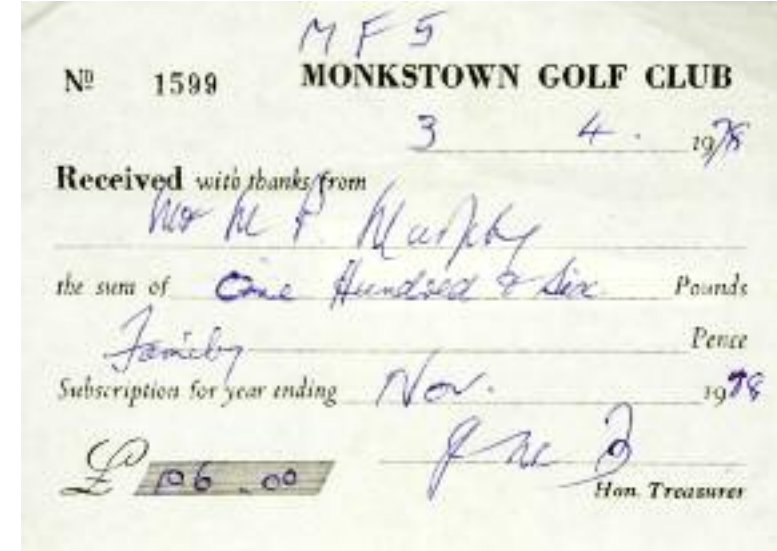 M F S
Nº 1599 MONKSTOWN GOLF CLUB
3 4. 1978
Received with thanks from
Mr M P. Murphy
the sum of One Hundred & Six Pounds
Pence
Family
Subscription for year ending Nov. 1978
£ 106.00
Hon. Treasurer